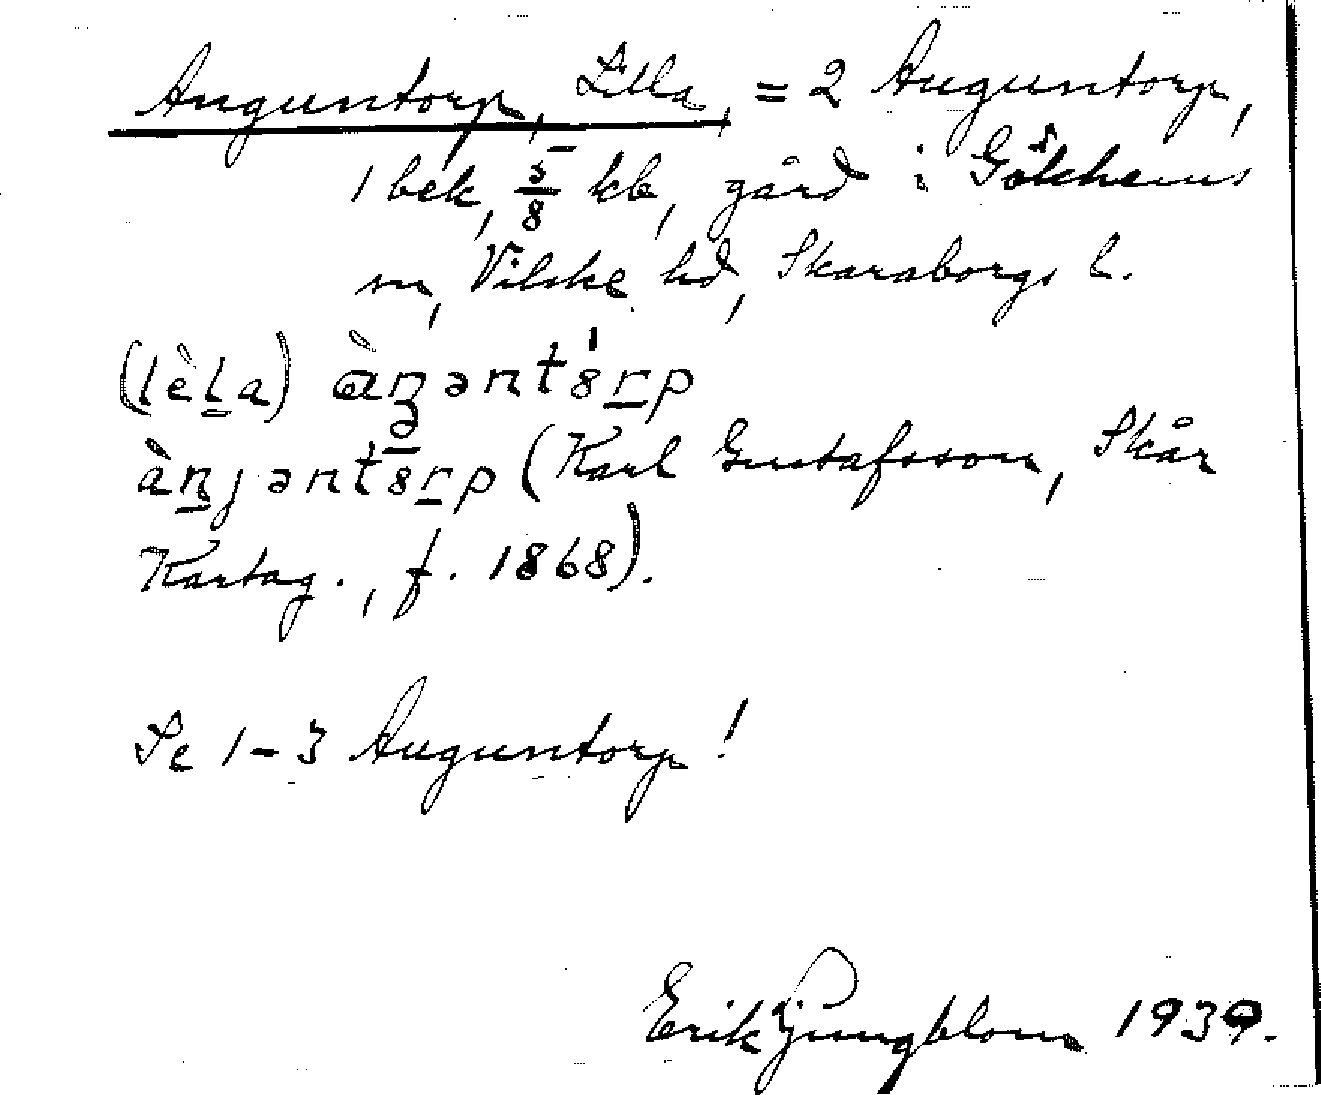 Auguntorp, Lilla, = 2 Auguntorp,
1 bek, 5/8 kb, gård i Gökhems
sn, Vilske hd, Skaraborgs l.
(lèḻa) àn̠ənt8́ṟp
àṉjənt8́ṟp (Karl Gustafsson, Skår
Kartag., f. 1868).
Se 1-3 Auguntorp!
Erik Ljungblom 1939.